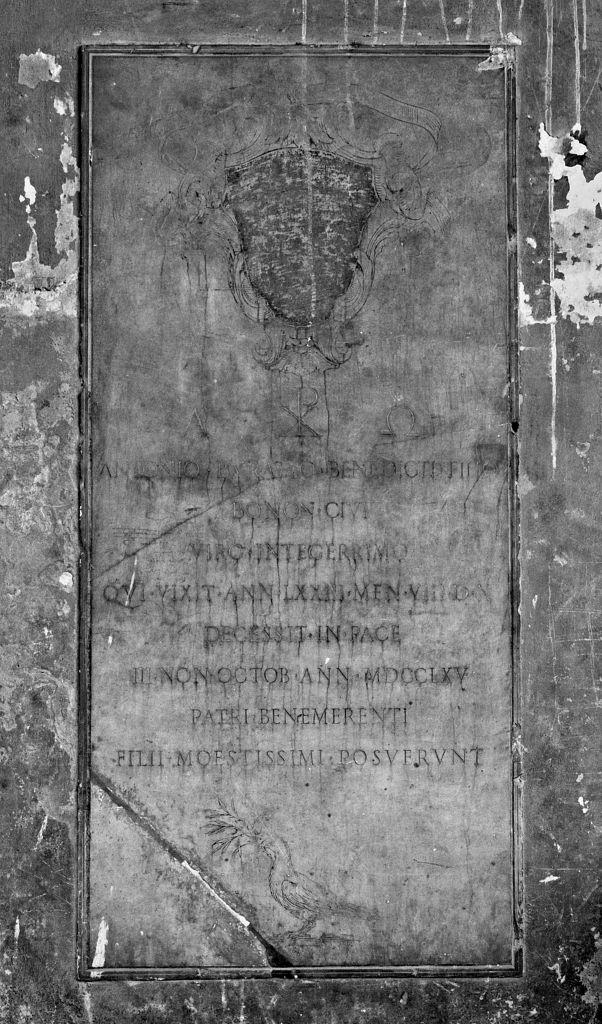 Α ☧ Ω
ANTONIO · BENEDICTI · FIL
BONON · CIVI
VIRO · INTEGERRIMO
QVI · VIXIT · ANN · LXXIII · MEN · VIII · D · X
DECESSIT · IN · PACE
III · NON · OCTOB · ANN · MDCCLXV
PATRI · BENEMERENTI
FILII · MOESTISSIMI · POSVERVNT